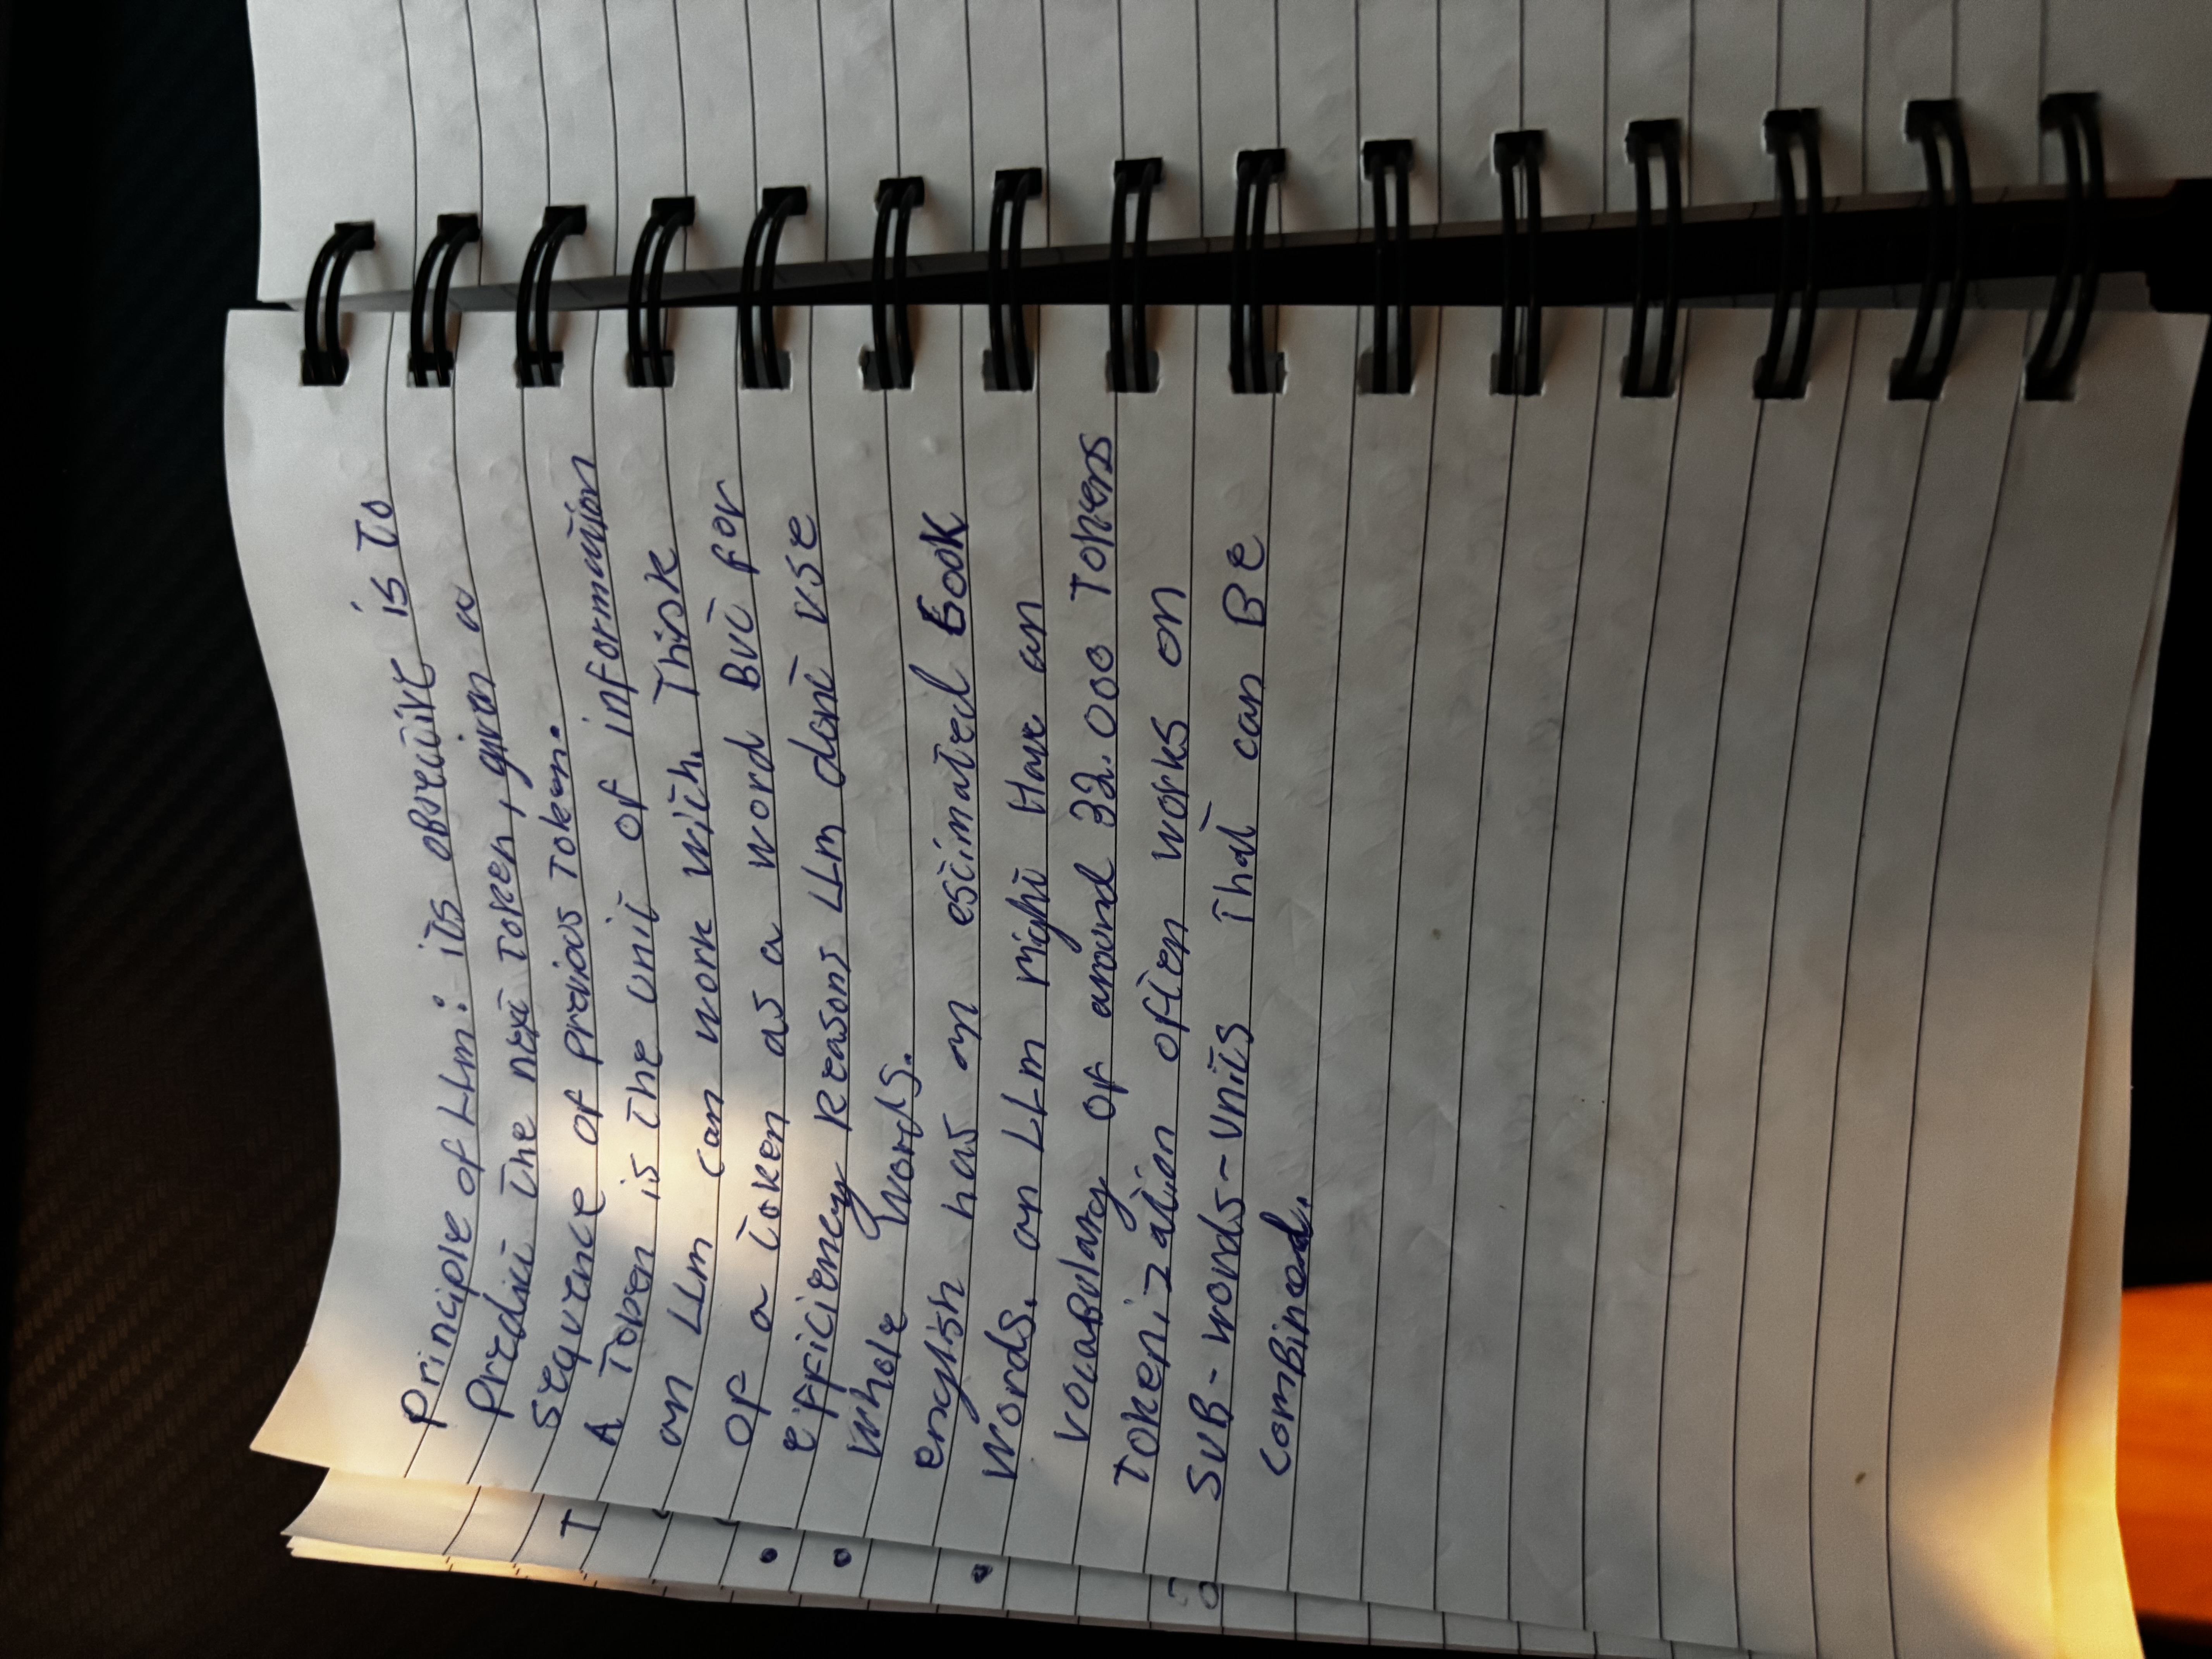 Principle of LLm: its objective is to
Predict the next Token, given a
sequence of previous Token.
A Token is the unit of information
an LLm can work with. Think
of a token as a word But for
efficiency Reasons LLm dont use
whole words.
english has an estimated 600K
words. an LLm might Have an
vocabulary of around 32.000 Tokens
Tokenization often works on
SUB-words-units that can BE
comBined.